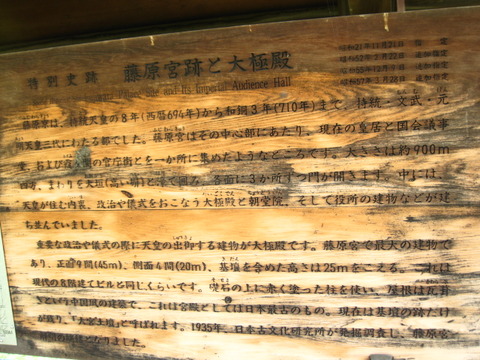 特別史跡 藤原宮跡と大極殿
and Its Imperial Audience Hall
昭和21年11月21日 指定
昭和52年2月22日 追加指定
追加指定
昭和57年1月28日 追加指定
藤原宮は、持統天皇の8年(西暦694年)から和銅3年(710年)まで、持統・文武・元
明天皇三代にわたる都でした。藤原宮はその中心部にあたり、現在の皇居と国会議事
堂、および霞が関の官庁街とを一か所に集めたようなところです。大きさは約900m
四方、まわりを大垣(高い塀)と濠で囲み、各面に3か所ずつ門が開きます。中には、
天皇が住む内裏、政治や儀式をおこなう大極殿と朝堂院、そして役所の建物などが建
ち並んでいました。
重要な政治や儀式の際に天皇の出御する建物が大極殿です。藤原宮で最大の建物で
あり、正面9間(45m)、側面4間(20m)、基壇を含めた高さは25mをこえる。これは
現代の8階建てビルと同じくらいです。礎石の上に赤く塗った柱を使い、屋根は瓦葺
きという中国風の建築で、これは宮殿としては日本最古のもの。現在は基壇の跡だけ
が残り、「大宮土壇」と呼ばれます。1935年、日本古文化研究所が発掘調査し、藤原宮
となりました。